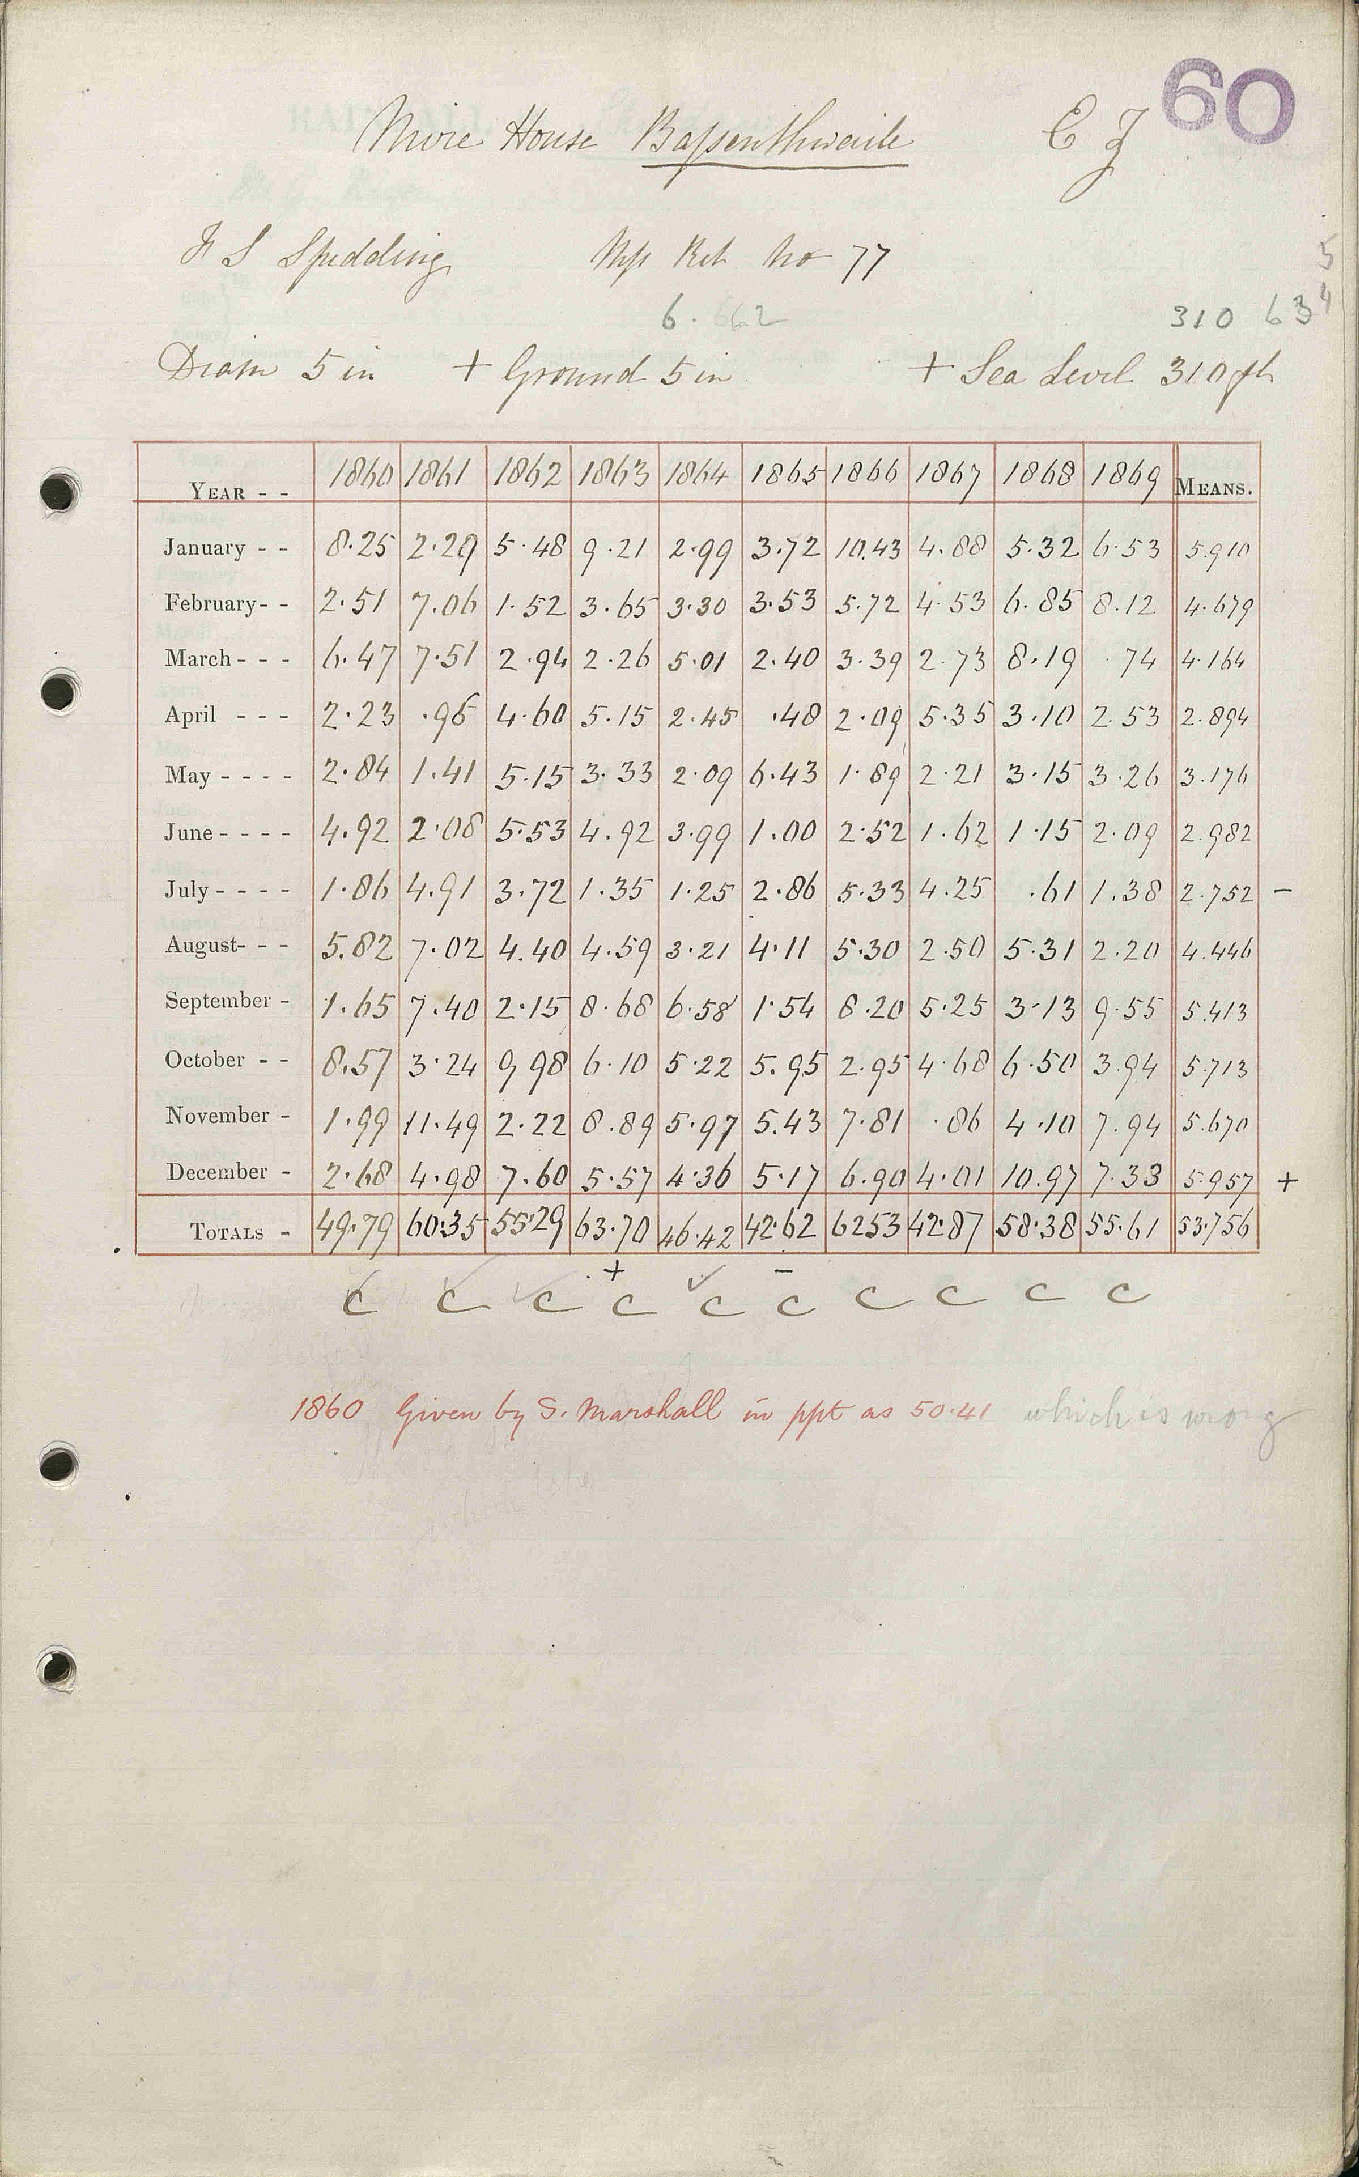 60
Mire House Bassenthwaite
T S Spedding Mss Ret No 77
6. 62
310 63
Diam 5 in + Ground 5 in + Sea Level 310 ft
YEAR - - 1860 1861 1862 1863 1864 1865 1866 1867 1868 1869 MEANS.
January - - 8.25 2.29 5.48 9.21 2.99 3.72 10.43 4.88 5.32 6.53 5.910
February - - 2.51 7.06 1.52 3.65 3.30 3.53 5.72 4.53 6.85 8.12 4.679
March - - - 6.47 7.51 2.94 2.26 5.01 2.40 3.39 2.73 8.19 .74 4.164
April - - - 2.23 .96 4.60 5.15 2.45 .48 2.09 5.35 3.10 2.53 2.894
May - - - - 2.84 1.41 5.15 3.33 2.09 6.43 1.89 2.21 3.15 3.26 3.176
June - - - - 4.92 2.08 5.53 4.92 3.99 1.00 2.52 1.62 1.15 2.09 2.982
July - - - - 1.86 4.91 3.72 1.35 1.25 2.86 5.33 4.25 .61 1.38 2.752 -
August - - - 5.82 7.02 4.40 4.59 3.21 4.11 5.30 2.50 5.31 2.20 4.446
September - 1.65 7.40 2.15 8.68 6.58 1.54 8.20 5.25 3.13 9.55 5.413
October - - 8.57 3.24 9.98 6.10 5.22 5.95 2.95 4.68 6.50 3.94 5.713
November - 1.99 11.49 2.22 8.89 5.97 5.43 7.81 .86 4.10 7.94 5.670
December - 2.68 4.98 7.60 5.57 4.36 5.17 6.90 4.01 10.97 7.33 5.957 +
TOTALS - 49.79 60.35 55.29 63.70 46.42 42.62 6253 42.87 58.38 55.61 53.756
+ -
C C C C C C C C C C
1860 Given by S. Marshall in ppt as 50.41 which is wrong